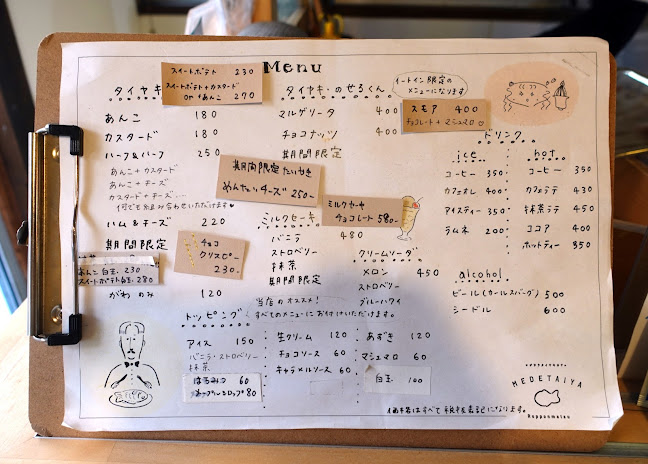 Menu
スイートポテト 230
スイートポテト+カスタード
or +あんこ 270
タイヤキ
あんこ 180
カスタード 180
ハーフ&ハーフ 250
あんこ+カスタード
あんこ+チーズ
カスタード+チーズ...
何でも組み合わせいただけます♥
ハム&チーズ 220
期間限定
あんこ白玉 230
スイートポテト白玉 280
がわのみ 120
チョコ
クリスピー
230
期間限定たいやき
めんたいチーズ 250
タイヤキ・のせろくん
イートイン限定の
メニューになります
マルゲリータ 400
チョコナッツ 400
期間限定
スモア 400
チョコレート+マシュマロ
ミルクセーキ
バニラ 480
ストロベリー
抹茶
期間限定
ミルクセーキ
チョコレート 580
クリームソーダ
メロン 450
ストロベリー
ブルーハワイ
ドリンク
ice
コーヒー 350
カフェオレ 400
アイスティー 350
ラムネ 200
hot
コーヒー 350
カフェラテ 430
抹茶ラテ 450
ココア 400
ホットティー 350
alcohol
ビール(カールスバーグ) 500
シードル 600
当店のオススメ!
トッピング すべてのメニューにお付けいただけます。
アイス 150
バニラ・ストロベリー
抹茶
はちみつ 60
メープルシロップ 80
生クリーム 120
チョコソース 60
キャラメルソース 60
あずき 120
マシュマロ 60
白玉 100
MEDETAIYA
Ropponmatsu
価格はすべて税抜表記になります。